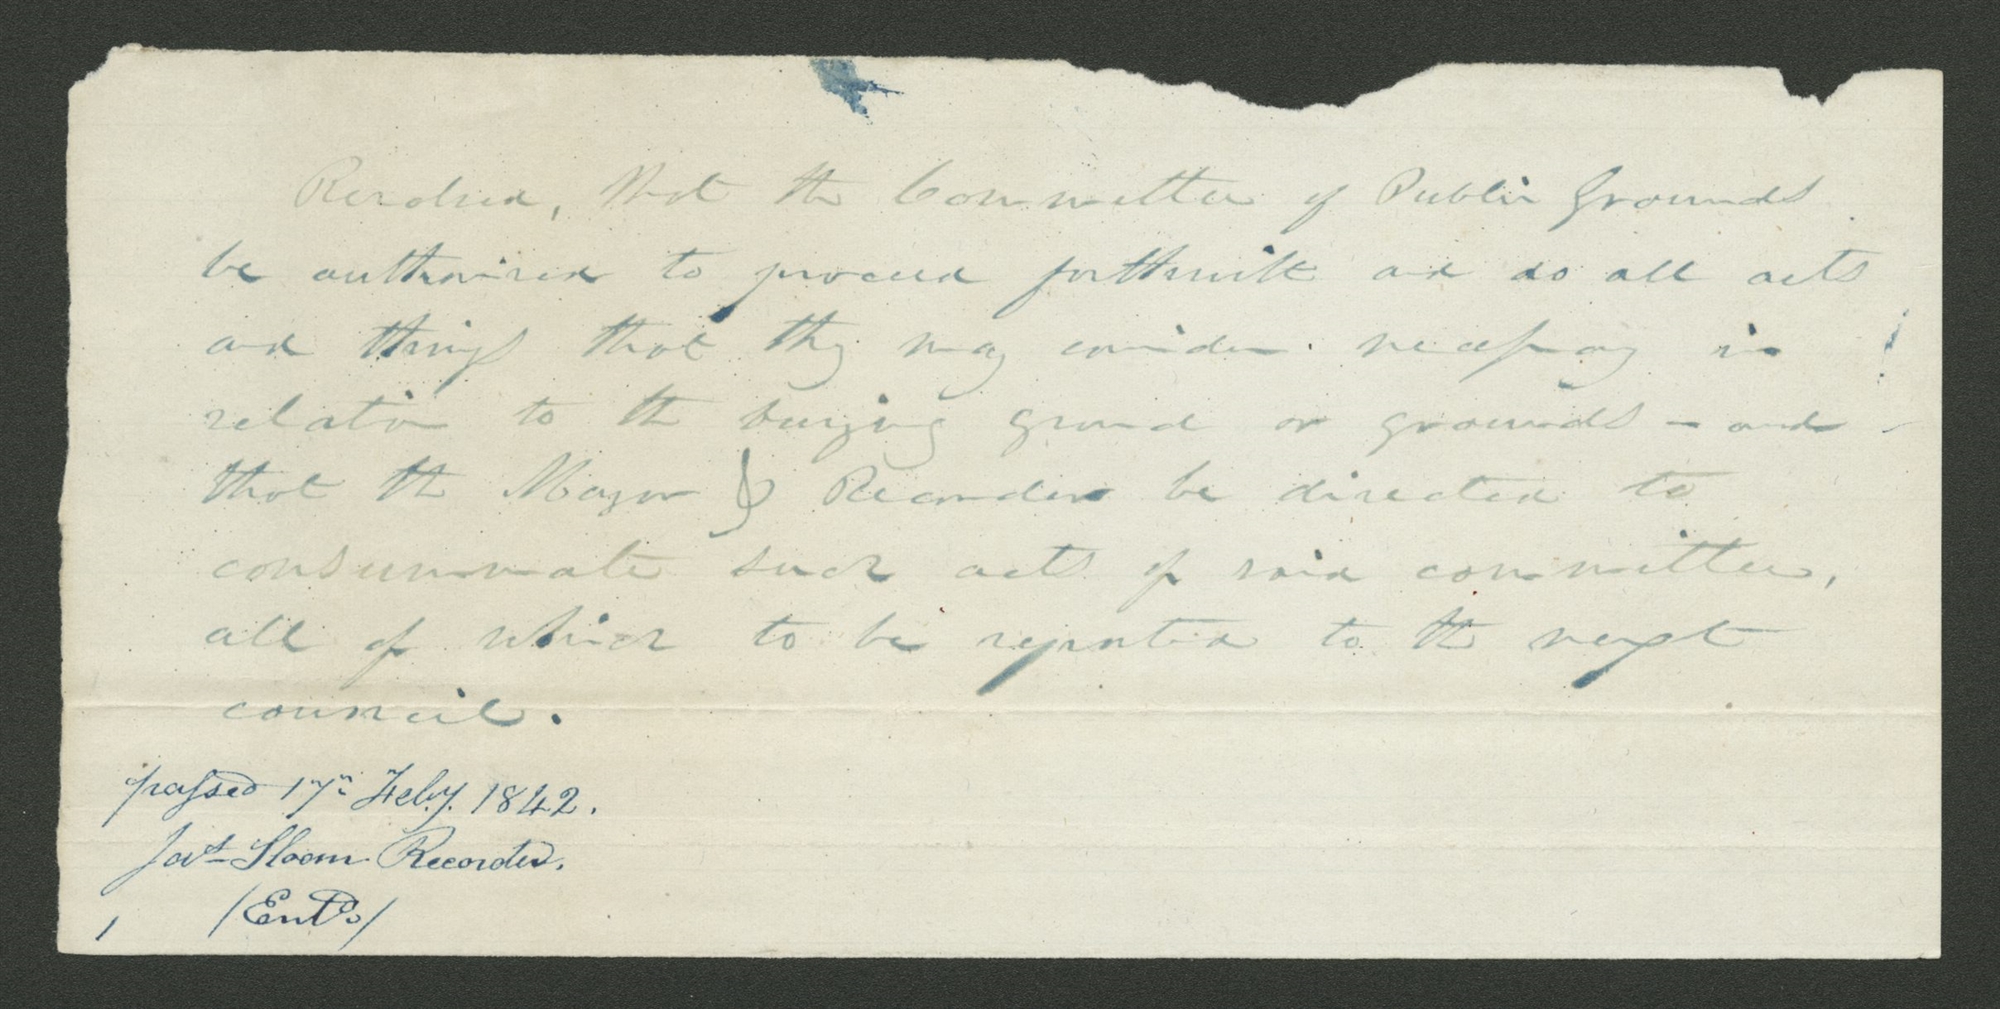 Resolved, that the Committee of Public Grounds
be authorized to proceed forthwith and do all acts
and things that they may consider necessary in
relation to the burying ground or grounds - and
that the Mayor & Recorder be directed to
consummate such acts of said committee,
all of which to be reported to the next
council.
passed 17th Feby. 1842.
Jas. Sloan Recorder.
/Entd/
1